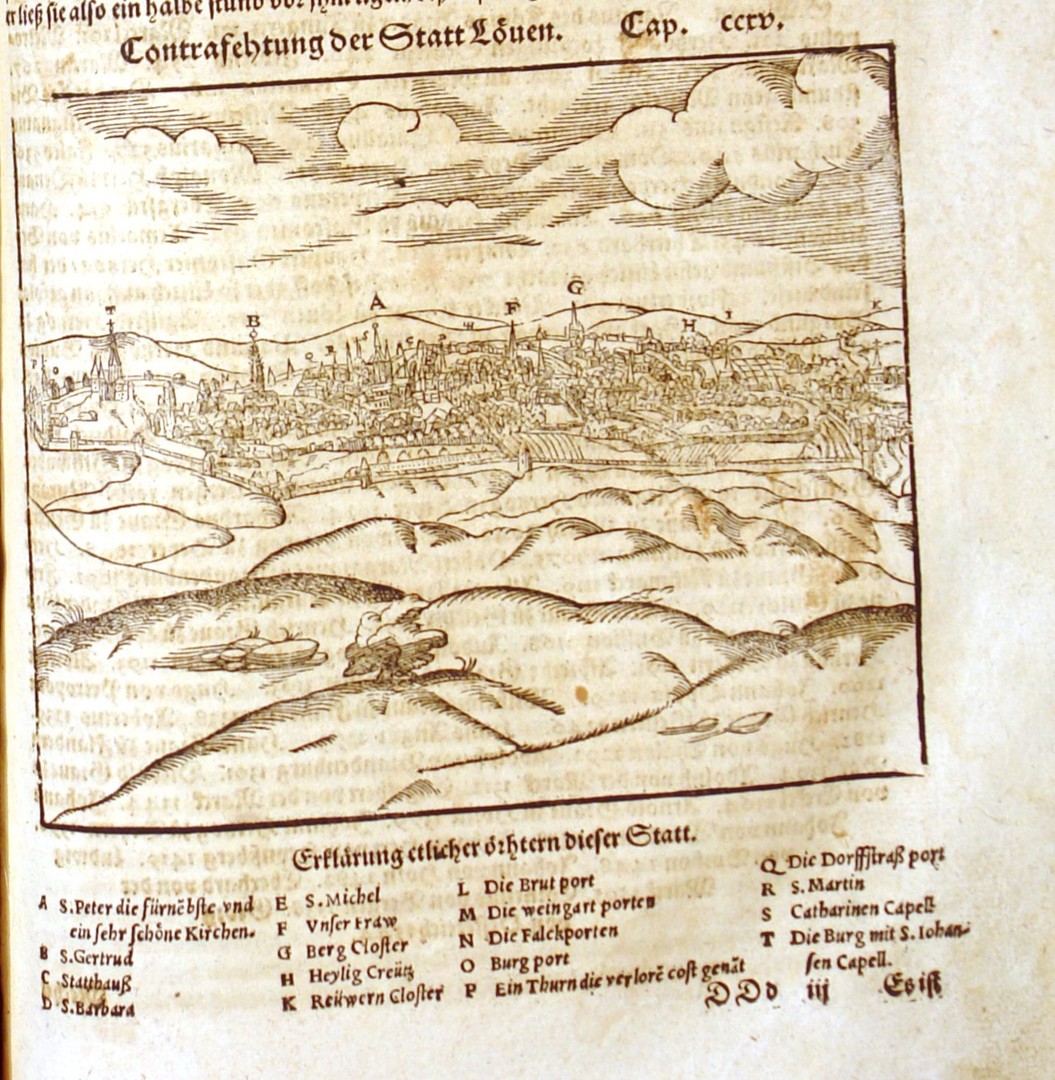 er ließ sie also ein halbe stund vor
Contrafehtung der Statt Löuen. Cap. cccxv.
T
B
A
F
G
H
I
K
Erklärung etlicher örhtern dieser Statt.
A S. Peter die fürnẽbste vnd
ein sehr schöne Kirchen.
B S. Gertrud
C Statthauß
D S. Barbara
E S. Michel
F Vnser Fraw
G Berg Closter
H Heylig Creütz
K Reüwern Closter
L Die Brut port
M Die weingart porten
N Die Falckporten
O Burg port
P Ein Thurn die verlorẽ cost genãt
Q Die Dorffstraß port
R S. Martin
S Catharinen Capell
T Die Burg mit S. Iohan-
sen Capell.
DDd iij Es ist